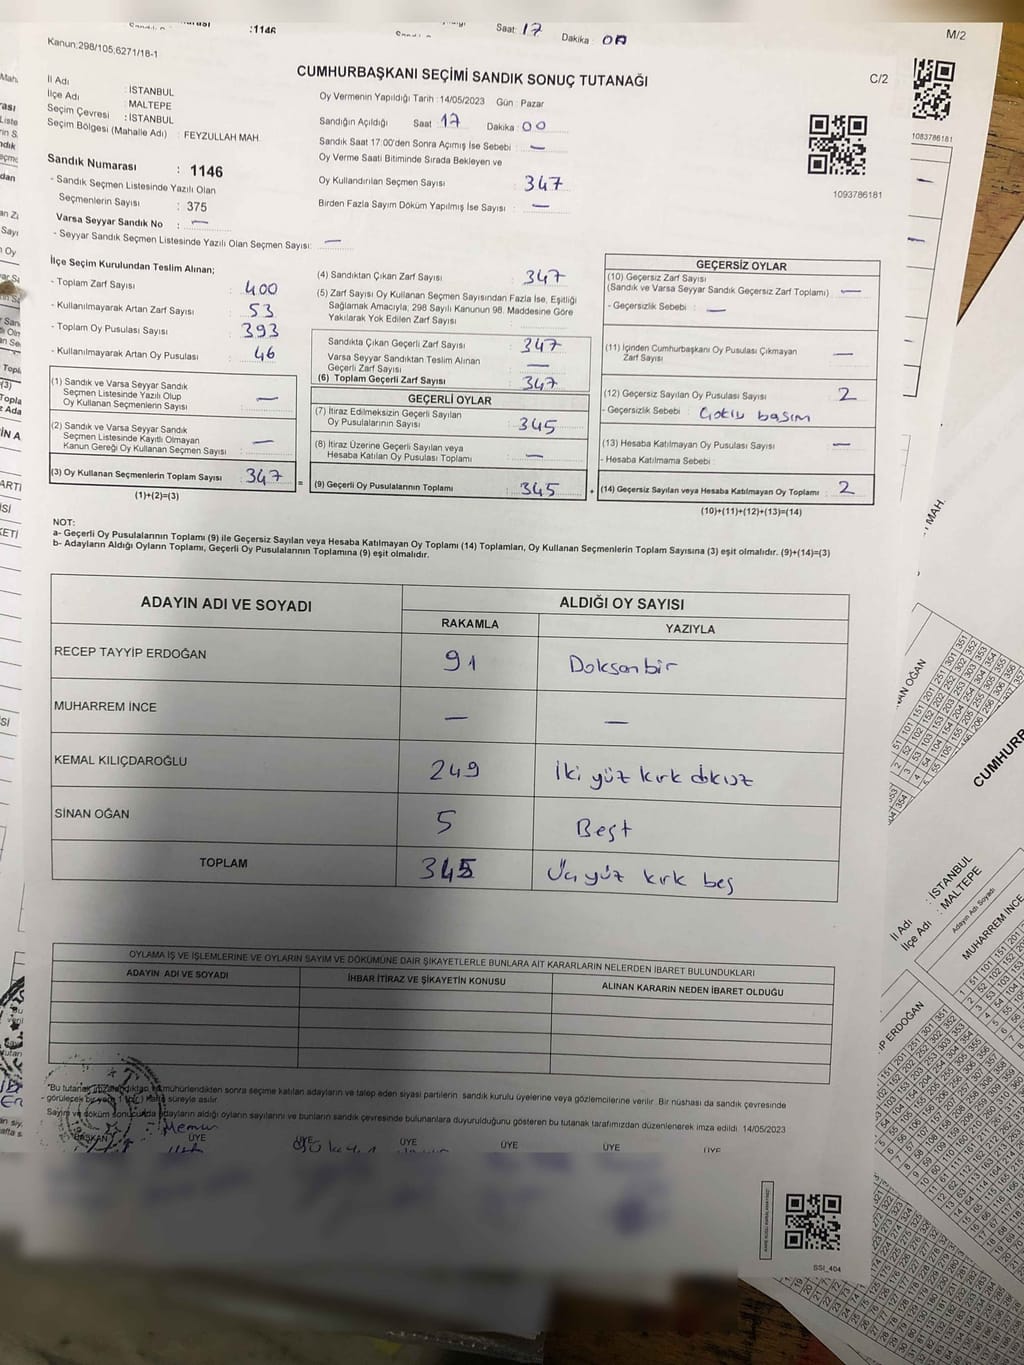 :1146
Saat 17
Dakika 00
M/2
Kanun:298/105;6271/18-1
CUMHURBAŞKANI SEÇİMİ SANDIK SONUÇ TUTANAĞI
C/2
İl Adı : İSTANBUL
İlçe Adı : MALTEPE
Seçim Çevresi : İSTANBUL
Seçim Bölgesi (Mahalle Adı) : FEYZULLAH MAH.
Oy Vermenin Yapıldığı Tarih : 14/05/2023 Gün : Pazar
Sandığın Açıldığı Saat 17 Dakika 00
Sandık Saat 17:00'den Sonra Açımış İse Sebebi : —
Oy Verme Saati Bitiminde Sırada Bekleyen ve
Oy Kullandırılan Seçmen Sayısı : 347
Birden Fazla Sayım Döküm Yapılmış İse Sayısı : —
1093786181
1083786181
Sandık Numarası : 1146
- Sandık Seçmen Listesinde Yazılı Olan
Seçmenlerin Sayısı : 375
Varsa Seyyar Sandık No : —
- Seyyar Sandık Seçmen Listesinde Yazılı Olan Seçmen Sayısı: —
İlçe Seçim Kurulundan Teslim Alınan;
- Toplam Zarf Sayısı : 400
- Kullanılmayarak Artan Zarf Sayısı : 53
- Toplam Oy Pusulası Sayısı : 393
- Kullanılmayarak Artan Oy Pusulası : 46
(1) Sandık ve Varsa Seyyar Sandık
Seçmen Listesinde Yazılı Olup
Oy Kullanan Seçmenlerin Sayısı : —
(2) Sandık ve Varsa Seyyar Sandık
Seçmen Listesinde Kayıtlı Olmayan
Kanun Gereği Oy Kullanan Seçmen Sayısı : —
(3) Oy Kullanan Seçmenlerin Toplam Sayısı : 347
(1)+(2)=(3)
=
(4) Sandıktan Çıkan Zarf Sayısı : 347
(5) Zarf Sayısı Oy Kullanan Seçmen Sayısından Fazla İse, Eşitliği
Sağlamak Amacıyla, 298 Sayılı Kanunun 98. Maddesine Göre
Yakılarak Yok Edilen Zarf Sayısı :
Sandıkta Çıkan Geçerli Zarf Sayısı : 347
Varsa Seyyar Sandıktan Teslim Alınan
Geçerli Zarf Sayısı : —
(6) Toplam Geçerli Zarf Sayısı : 347
GEÇERLİ OYLAR
(7) İtiraz Edilmeksizin Geçerli Sayılan
Oy Pusulalarının Toplamı : 345
(8) İtiraz Üzerine Geçerli Sayılan veya
Hesaba Katılan Oy Pusulası Toplamı : —
(9) Geçerli Oy Pusulalarının Toplamı : 345
+
GEÇERSİZ OYLAR
(10) Geçersiz Zarf Sayısı
(Sandık ve Varsa Seyyar Sandık Geçersiz Zarf Toplamı) : —
- Geçersizlik Sebebi : —
(11) İçinden Cumhurbaşkanı Oy Pusulası Çıkmayan
Zarf Sayısı : —
(12) Geçersiz Sayılan Oy Pusulası Sayısı : 2
- Geçersizlik Sebebi : Çoklu basım
(13) Hesaba Katılmayan Oy Pusulası Sayısı : —
- Hesaba Katılmama Sebebi :
(14) Geçersiz Sayılan veya Hesaba Katılmayan Oy Toplamı : 2
(10)+(11)+(12)+(13)=(14)
NOT:
a- Geçerli Oy Pusulalarının Toplamı (9) ile Geçersiz Sayılan veya Hesaba Katılmayan Oy Toplamı (14) Toplamları, Oy Kullanan Seçmenlerin Toplam Sayısına (3) eşit olmalıdır. (9)+(14)=(3)
b- Adayların Aldığı Oyların Toplamı, Geçerli Oy Pusulalarının Toplamına (9) eşit olmalıdır.
ADAYIN ADI VE SOYADI
ALDIĞI OY SAYISI
RAKAMLA YAZIYLA
RECEP TAYYİP ERDOĞAN 91 Doksan bir
MUHARREM İNCE — —
KEMAL KILIÇDAROĞLU 249 İki yüz kırk dokuz
SİNAN OĞAN 5 Beşt
TOPLAM 345 Üç yüz kırk beş
OYLAMA İŞ VE İŞLEMLERİNE VE OYLARIN SAYIM VE DÖKÜMÜNE DAİR ŞİKAYETLERLE BUNLARA AİT KARARLARIN NELERDEN İBARET BULUNDUKLARI
ADAYIN ADI VE SOYADI İHBAR İTİRAZ VE ŞİKAYETİN KONUSU ALINAN KARARIN NEDEN İBARET OLDUĞU
*Bu tutanak imzalandıktan ve mühürlendikten sonra seçime katılan adayların ve talep eden siyasi partilerin sandık kurulu üyelerine veya gözlemcilerine verilir. Bir nüshası da sandık çevresinde
görülecek bir yere 1 (bir) hafta süreyle asılır.
Sayım ve döküm sonucunda adayların aldığı oyların sayılarını ve bunların sandık çevresinde bulunanlara duyurulduğunu gösteren bu tutanak tarafımızdan düzenlenerek imza edildi. 14/05/2023
Memur
BAŞKAN ÜYE ÜYE ÜYE ÜYE ÜYE ÜYE
SSI_404
MAH.
CUMHURB
İl Adı : İSTANBUL
İlçe Adı : MALTEPE
Adayın Adı Soyadı
MUHARREM İNCE